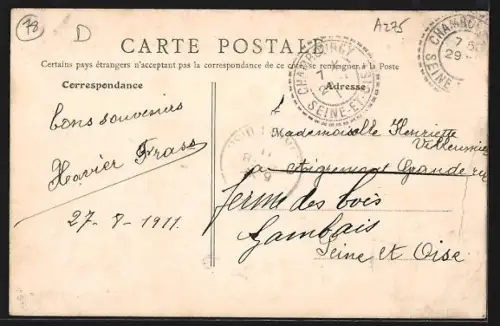 78
D
A275
CARTE POSTALE
Certains pays étrangers n'acceptant pas la correspondance de ce côté, se renseigner à la Poste
Correspondance
Adresse
CHAMBOURCY
7
SEINE-ET-OISE
CHAMBOURCY
7
29
SEINE
bons souvenirs
Xavier Frass
27-8-1911.
Mademoiselle Henriette
Villeumier
Aigremont Grande rue
ferme des bois
Gambais
Seine et Oise